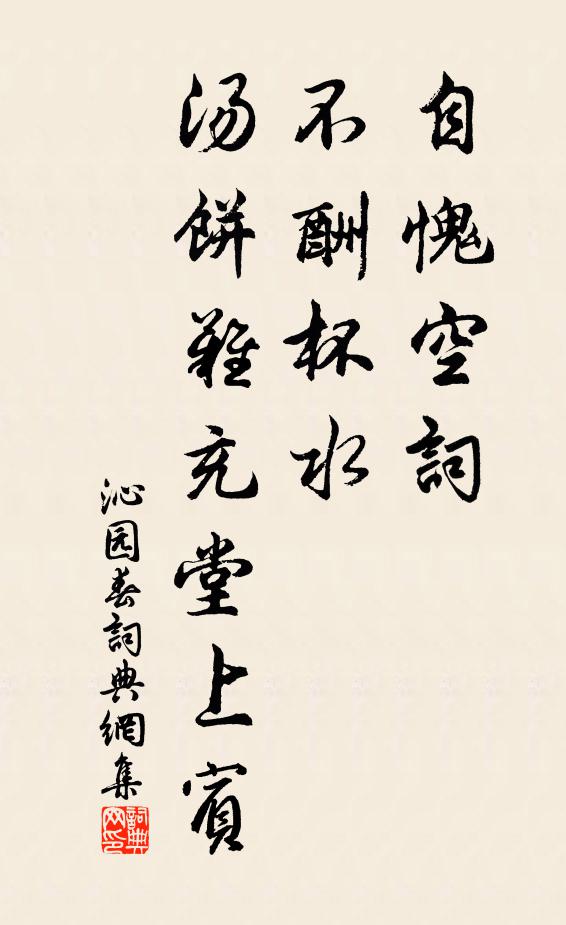 自愧空詞
不酬杯水
汤餅難充堂上賓
沁园春詞典網集
詞典网印